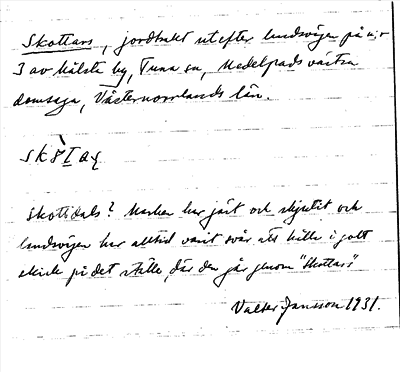 Skottars, jordtakt utefter landsvägen på n:r
3 av Målsta by, Tuna sn, Medelpads västra
domsaga, Västernorrlands län.
Skottdals? Marken har jäst och skjutit och
landsvägen har alltid varit svår att hålla i gott
skick på det ställe, där den går genom "Skottars".
Valter Jansson 1931.